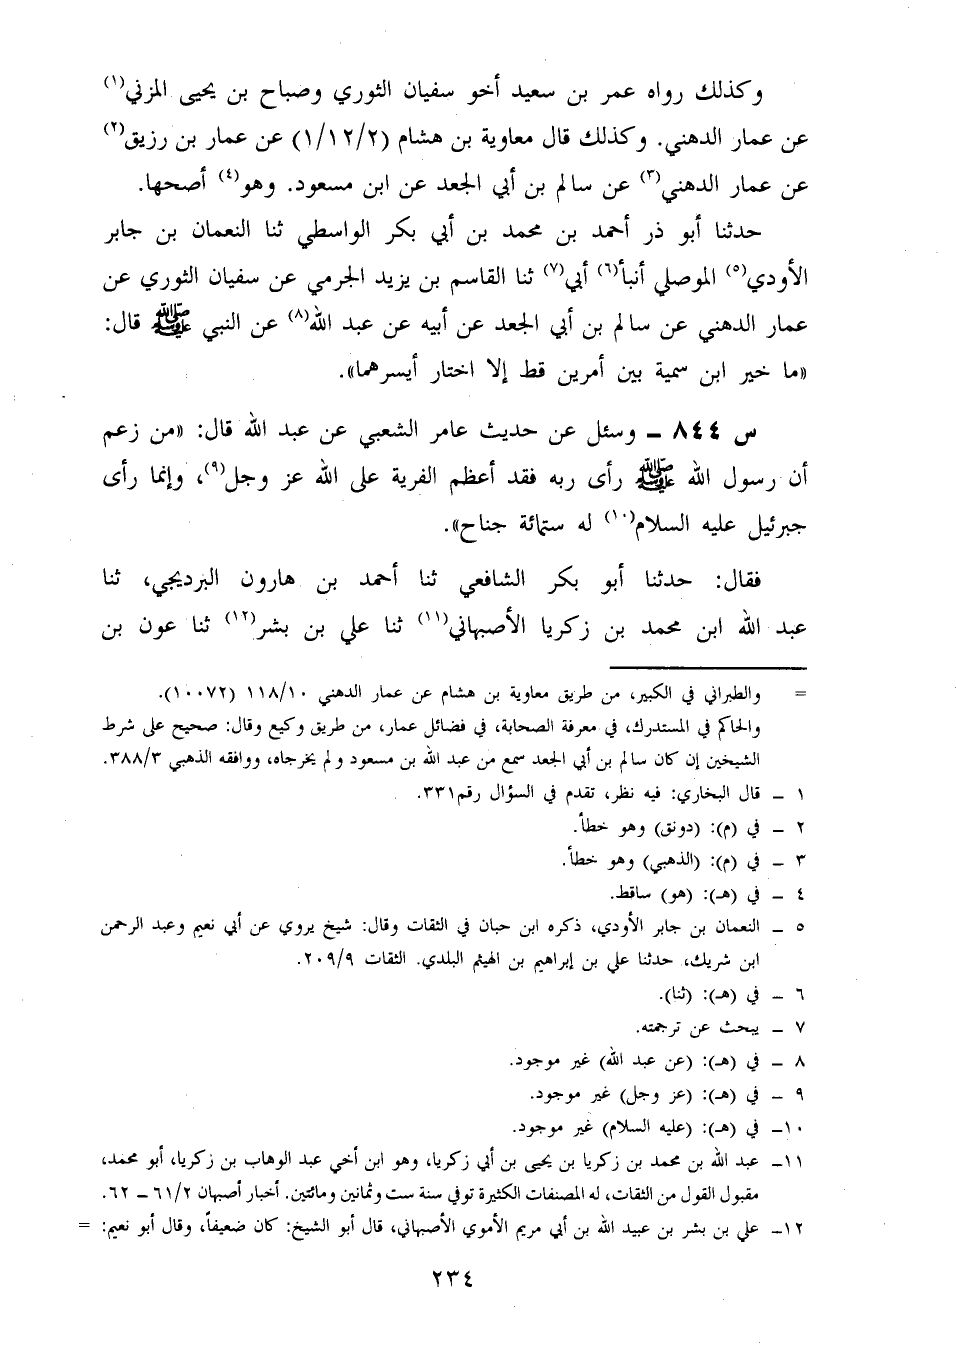 وكذلك رواه عمر بن سعيد أخو سفيان الثوري وصباح بن يحيى المزني(١)
عن عمار الدهني. وكذلك قال معاوية بن هشام (١/١٢/٢) عن عمار بن رزيق(٢)
عن عمار الدهني(٣) عن سالم بن أبي الجعد عن ابن مسعود. وهو(٤) أصحها.
حدثنا أبو ذر أحمد بن محمد بن أبي بكر الواسطي ثنا النعمان بن جابر
الأودي(٥) الموصلي أنبأ(٦) أبي(٧) ثنا القاسم بن يزيد الجرمي عن سفيان الثوري عن
عمار الدهني عن سالم بن أبي الجعد عن أبيه عن عبد الله(٨) عن النبي ﷺ قال:
«ما خير ابن سمية بين أمرين قط إلا اختار أيسرهما».
س ٨٤٤ ـ وسئل عن حديث عامر الشعبي عن عبد الله قال: «من زعم
أن رسول الله ﷺ رأى ربه فقد أعظم الفرية على الله عز وجل(٩)، وإنما رأى
جبرئيل عليه السلام(١٠) له ستمائة جناح».
فقال: حدثنا أبو بكر الشافعي ثنا أحمد بن هارون البرديجي، ثنا
عبد الله ابن محمد بن زكريا الأصبهاني(١١) ثنا علي بن بشر(١٢) ثنا عون بن
= والطبراني في الكبير، من طريق معاوية بن هشام عن عمار الدهني ١١٨/١٠ (١٠٠٧٢).
والحاكم في المستدرك، في معرفة الصحابة، في فضائل عمار، من طريق وكيع وقال: صحيح على شرط
الشيخين إن كان سالم بن أبي الجعد سمع من عبد الله بن مسعود ولم يخرجاه، ووافقه الذهبي ٣٨٨/٣.
١ ـ قال البخاري: فيه نظر، تقدم في السؤال رقم٣٣١.
٢ ـ في (م): (دونق) وهو خطأ.
٣ ـ في (م): (الذهبي) وهو خطأ.
٤ ـ في (هـ): (هو) ساقط.
٥ ـ النعمان بن جابر الأودي، ذكره ابن حبان في الثقات وقال: شيخ يروي عن أبي نعيم وعبد الرحمن
ابن شريك، حدثنا علي بن إبراهيم بن الهيثم البلدي. الثقات ٢٠٩/٩.
٦ ـ في (هـ): (ثنا).
٧ ـ يبحث عن ترجمته.
٨ ـ في (هـ): (عن عبد الله) غير موجود.
٩ ـ في (هـ): (عز وجل) غير موجود.
١٠ـ في (هـ): (عليه السلام) غير موجود.
١١ـ عبد الله بن محمد بن زكريا بن يحيى بن أبي زكريا، وهو ابن أخي عبد الوهاب بن زكريا، أبو محمد،
مقبول القول من الثقات، له المصنفات الكثيرة توفي سنة ست وثمانين ومائتين. أخبار أصبهان ٦١/٢ ـ ٦٢.
١٢ـ علي بن بشر بن عبيد الله بن أبي مريم الأموي الأصبهاني، قال أبو الشيخ: كان ضعيفاً، وقال أبو نعيم: =
٢٣٤